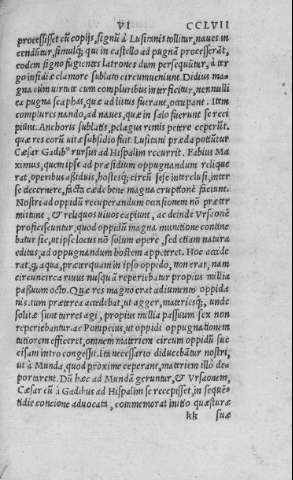 VI CCLVII
processisset cū copijs, signū à Lusitanis tollitur, naues in
cenduntur, simulq́; qui in castello ad pugnā processerāt,
eodem signo fugientes latrones dum persequūtur, à ter
go insidiæ clamore sublato circumueniunt. Didius ma-
gna cum uirtute cum compluribus interficitur, nonnulli
ea pugna scaphas, quæ ad litus fuerant, occupant. Item
complures nando, ad naues, quæ in salo fuerunt se reci
piunt. Anchoris sublatis, pelagus remis petere cœperūt.
quæ res eorū uitæ subsidio fuit. Lusitani præda potiūtur.
Cæsar Gadib' rursus ad Hispalim recurrit. Fabius Ma
ximus, quem ipse ad præsidium oppugnandum relique
rat, operibus assiduis, hostesq́; circū sese interclusi, inter
se decernere, facta cæde bene magna eruptionē faciunt.
Nostri ad oppidū recuperandum occasionem nō præter
mittunt, & reliquos uiuos capiunt, ac deinde Vrsaonē
proficiscuntur, quod oppidū magna munitione contine
batur sic, ut ipse locus nō solum opere, sed etiam natura
editus, ad oppugnandum hostem appeteret. Hoc accede
rat, q̄ aqua, præterquam in ipso oppido, non erat, nam
circumcirca riuus nusquā reperiebatur propius millia
passuum octo. Quæ res magno erat adiumento oppida
nis. tum præterea accedebat, ut agger, materiesq́;, unde
solitæ sunt turres agi, propius millia passuum sex non
reperiebantur. ac Pompeius, ut oppidi oppugnationem
tutiorem efficeret, omnem materiem circum oppidū suc
cisam intro congessit. Ita necessario diducebātur nostri,
ut à Munda, quod proxime ceperant, materiem illò de-
portarent. Dū hæc ad Mundā geruntur, & Vrsaonem,
Cæsar cū à Gadibus ad Hispalim se recepisset, in sequē-
ti die concione aduocata, commemorat initio quæsturæ
kk suæ